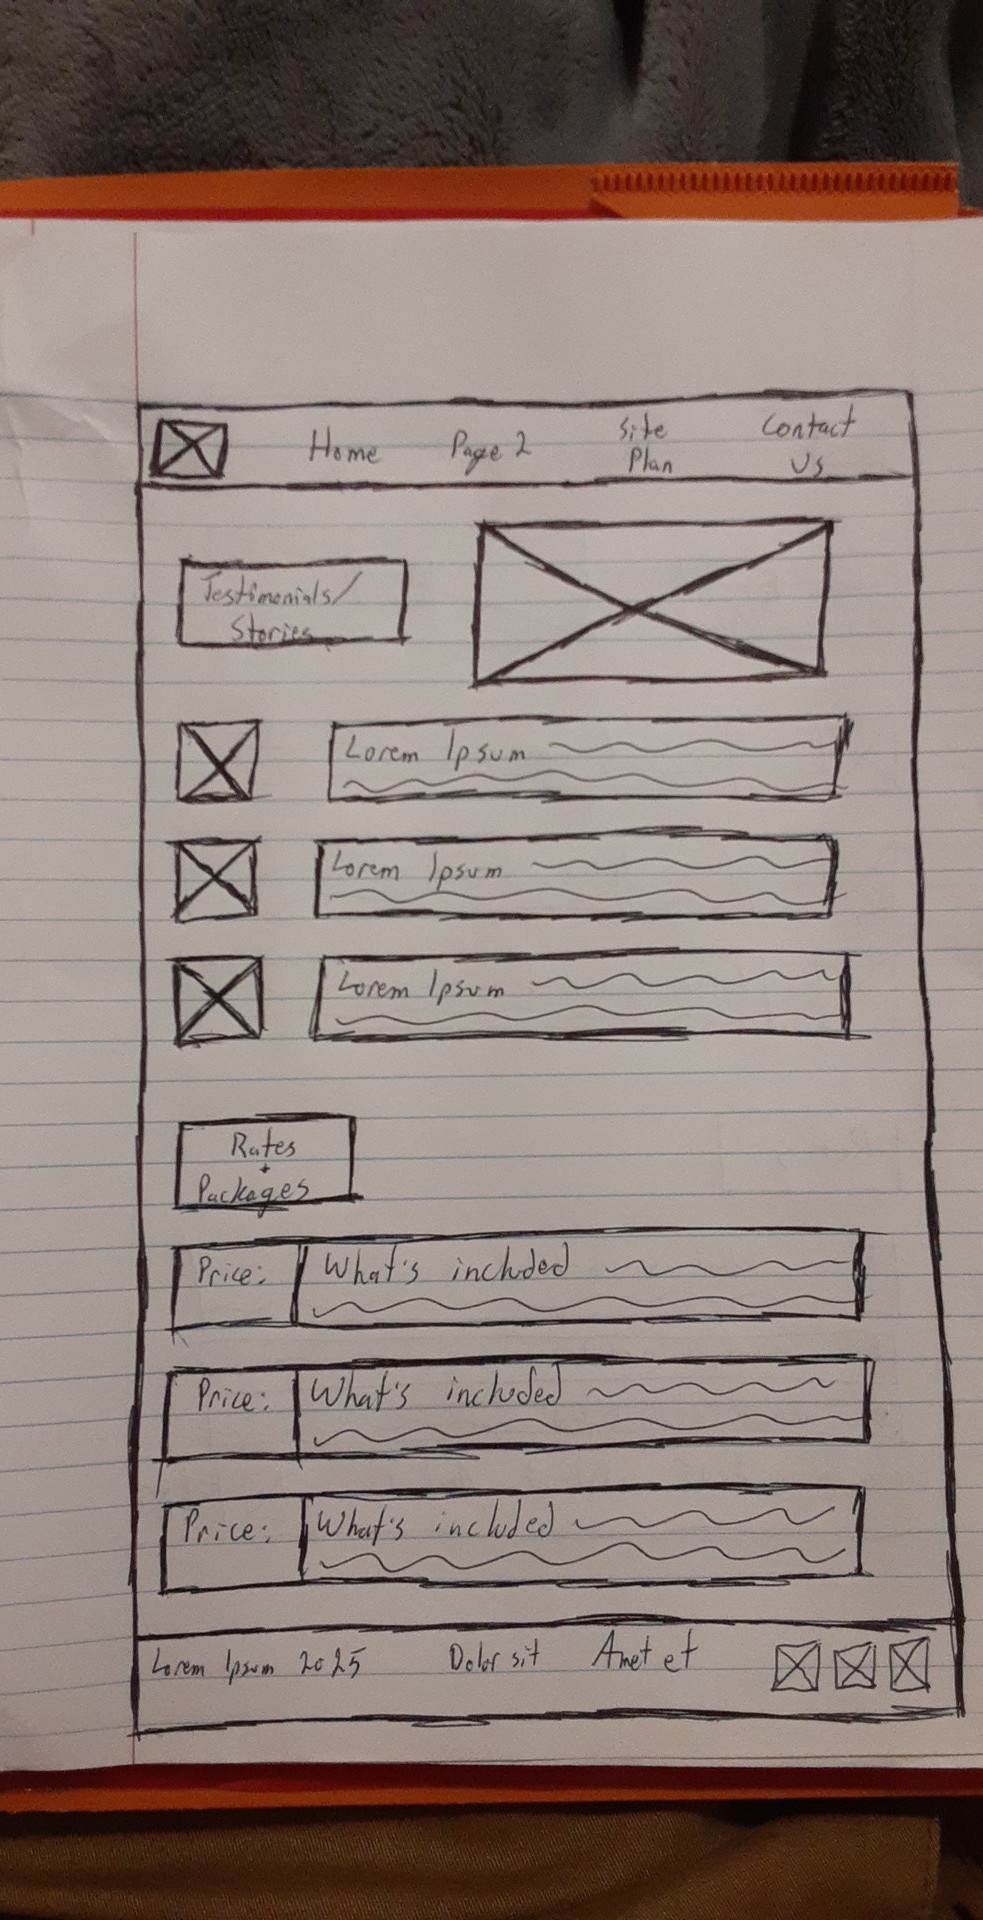 Home Page 2 Site Plan Contact Us
Testimonials/
Stories
Lorem Ipsum
Lorem Ipsum
Lorem Ipsum
Rates
+
Packages
Price: What's included
Price: What's included
Price: What's included
Lorem Ipsum 2025 Dolor sit Amet et